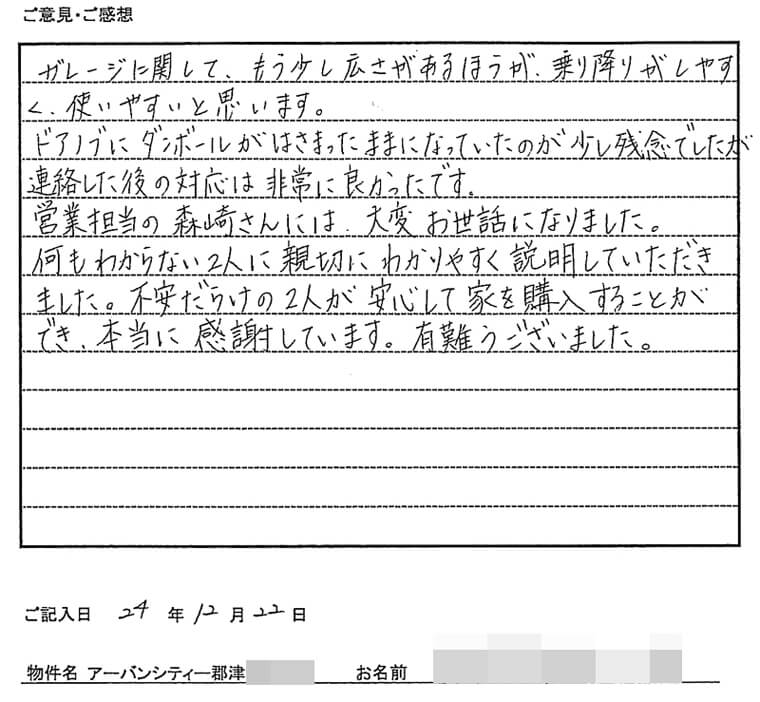 ご意見・ご感想
ガレージに関して、もう少し広さがあるほうが、乗り降りがしやす
く、使いやすいと思います。
ドアノブにダンボールがはさまったままになっていたのが少し残念でしたが
連絡した後の対応は非常に良かったです。
営業担当の森崎さんには、大変お世話になりました。
何もわからない2人に親切にわかりやすく説明していただき
ました。不安だらけの2人が安心して家を購入することが
でき、本当に感謝しています。有難うございました。
ご記入日 24 年 12 月 22 日
物件名 アーバンシティー郡津 お名前